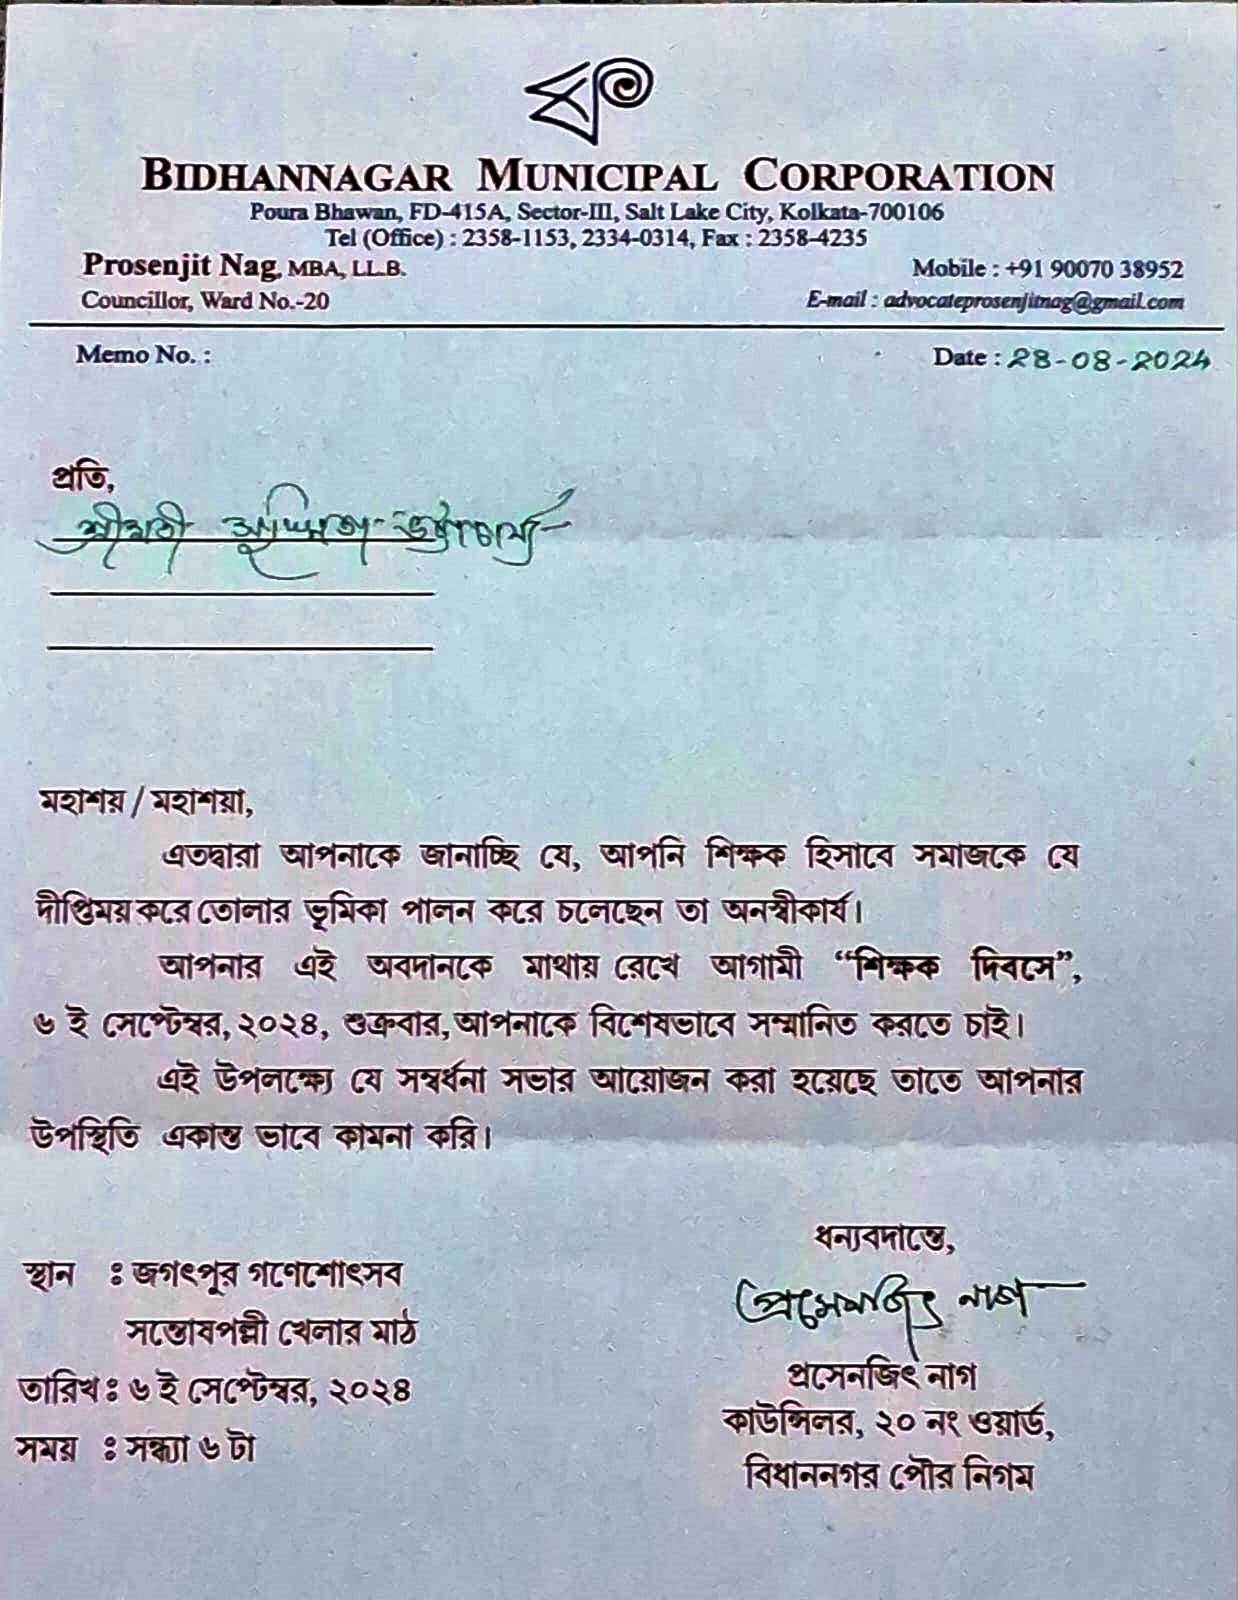 BIDHANNAGAR MUNICIPAL CORPORATION
Poura Bhawan, FD-415A, Sector-III, Salt Lake City, Kolkata-700106
Tel (Office) : 2358-1153, 2334-0314, Fax : 2358-4235
Prosenjit Nag, MBA, LL.B.
Mobile : +91 90070 38952
Councillor, Ward No.-20
E-mail : advocateprosenjitnag@gmail.com
Memo No. :
Date : 28-08-2024
প্রতি,
শ্রীমতী ভট্টাচার্য্য
মহাশয় / মহাশয়া,
এতদ্বারা আপনাকে জানাচ্ছি যে, আপনি শিক্ষক হিসাবে সমাজকে যে
দীপ্তিময় করে তোলার ভূমিকা পালন করে চলেছেন তা অনস্বীকার্য।
আপনার এই অবদানকে মাথায় রেখে আগামী “শিক্ষক দিবসে”,
৬ ই সেপ্টেম্বর, ২০২৪, শুক্রবার, আপনাকে বিশেষভাবে সম্মানিত করতে চাই।
এই উপলক্ষ্যে যে সম্বর্ধনা সভার আয়োজন করা হয়েছে তাতে আপনার
উপস্থিতি একান্ত ভাবে কামনা করি।
ধন্যবদান্তে,
প্রসেনজিৎ নাগ
প্রসেনজিৎ নাগ
কাউন্সিলর, ২০ নং ওয়ার্ড,
বিধাননগর পৌর নিগম
স্থান : জগৎপুর গণেশোৎসব
সন্তোষপল্লী খেলার মাঠ
তারিখ : ৬ ই সেপ্টেম্বর, ২০২৪
সময় : সন্ধ্যা ৬ টা